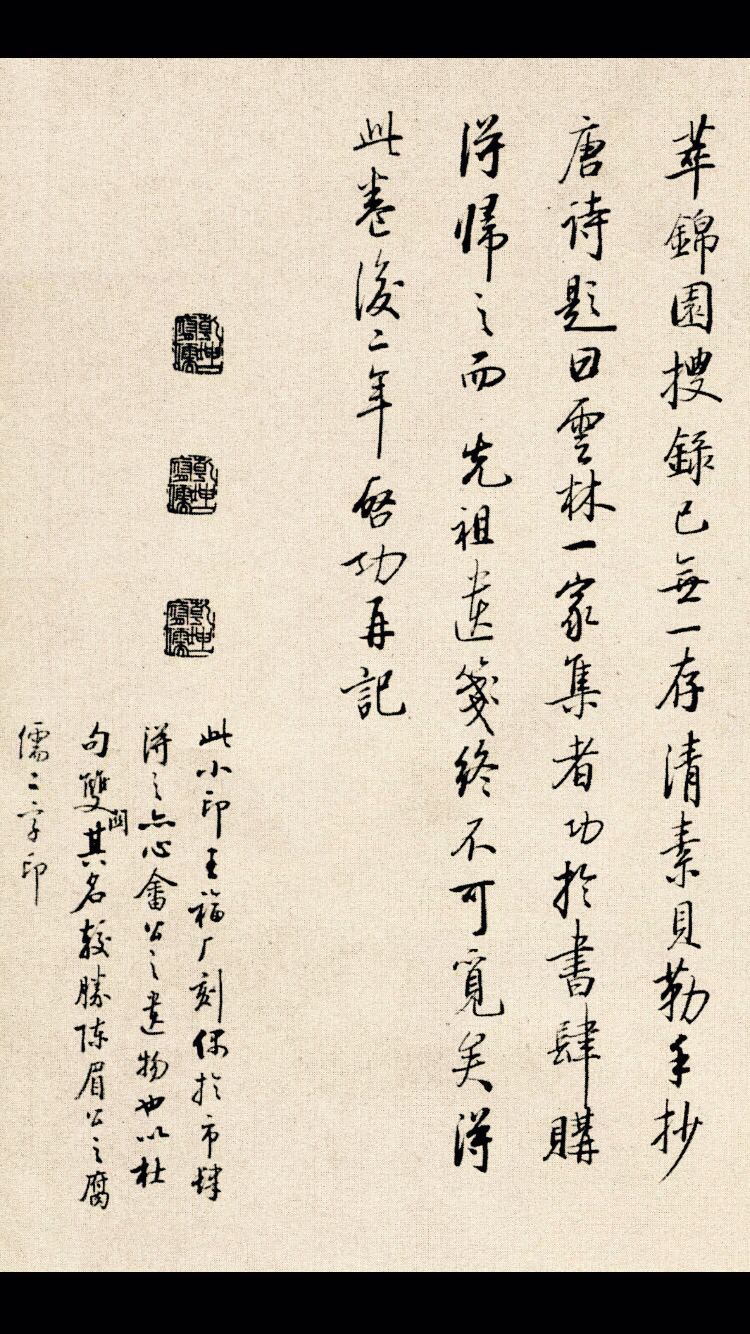 萃錦園搜錄已無一存清素貝勒手抄
唐詩題曰雲林一家集者功於書肆購
得歸之而先祖遺箋終不可覓矣得
此卷後二年啓功再記
乾坤一腐儒
乾坤一腐儒
乾坤一腐儒
此小印王福厂刻偶於市肆
得之亦心畬公之遺物也以杜
句雙關其名較勝陳眉公之腐
儒二字印